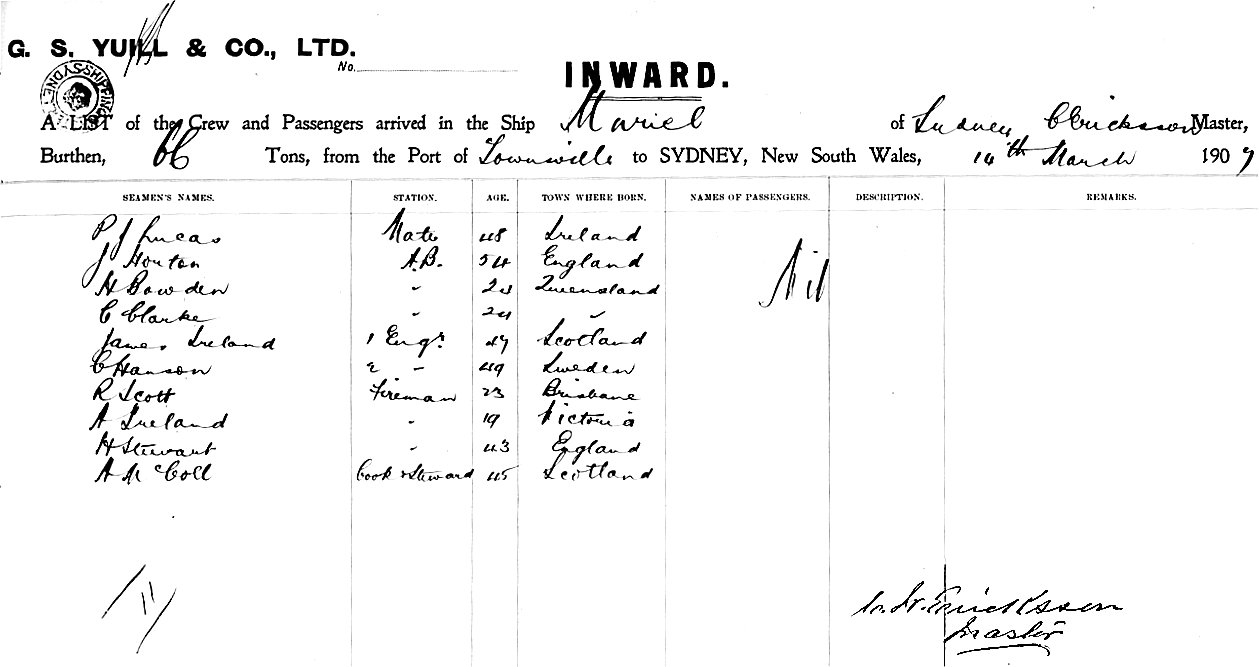 G. S. YUILL & CO., LTD.
No.
SYDNEY SHIPPING
INWARD.
A LIST of the Crew and Passengers arrived in the Ship Muriel of Sydney C Ericksson Master,
Burthen, 66 Tons, from the Port of Townsville to SYDNEY, New South Wales, 14th March 1907
SEAMEN'S NAMES. STATION. AGE. TOWN WHERE BORN. NAMES OF PASSENGERS. DESCRIPTION. REMARKS.
P J Lucas Mate 48 Ireland
J Houton A.B. 54 England
H Bowden " 24 Queensland Nil
C Clarke " 24 "
James Ireland 1 Engr 47 Scotland
C Hanson 2 " 49 Sweden
R Scott Fireman 23 Brisbane
A Ireland " 19 Victoria
H Stewart " 43 England
A McColl Cook & Steward 45 Scotland
11
Ericksson
Master